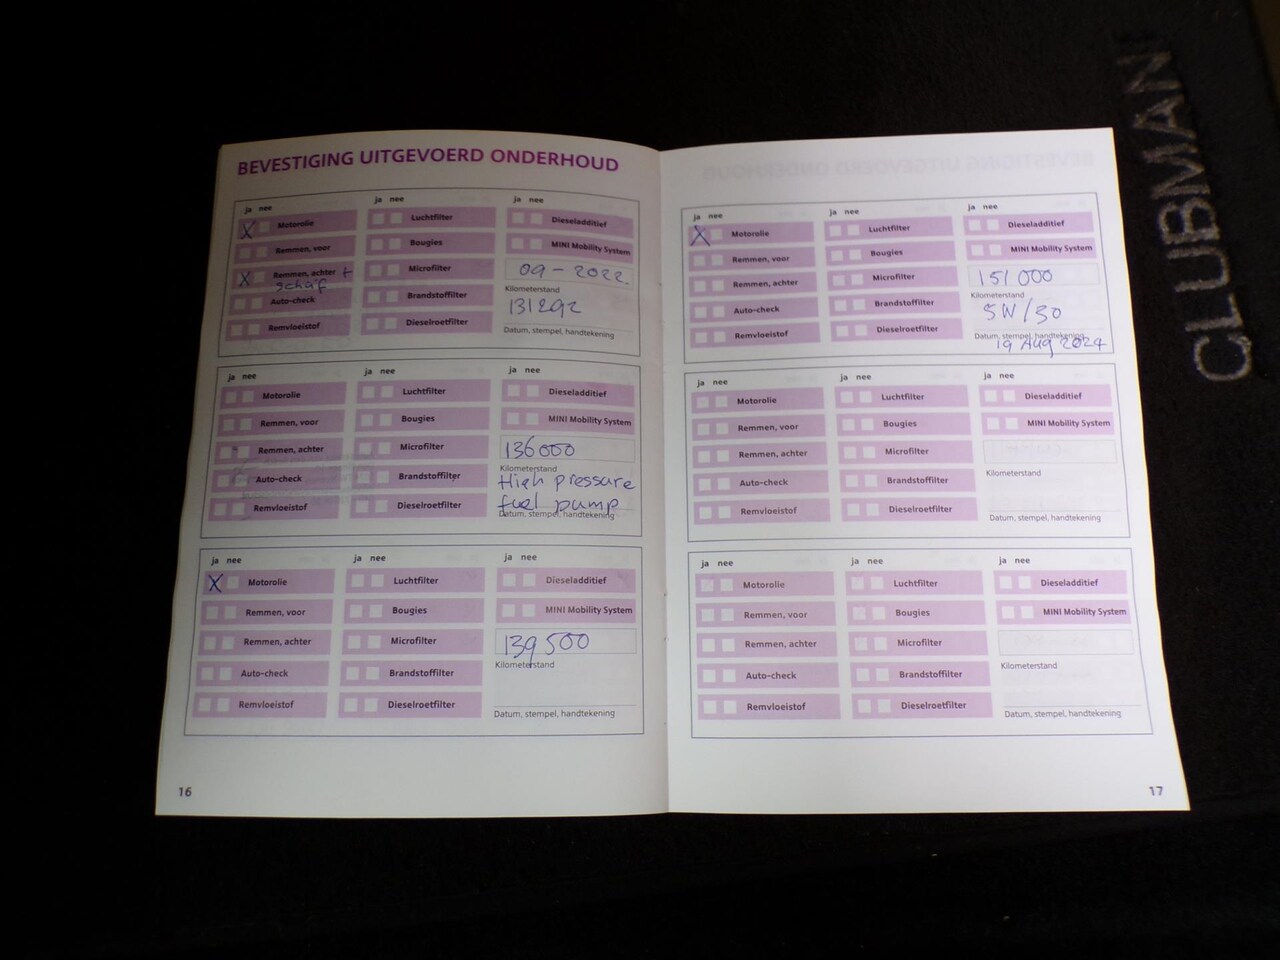 BEVESTIGING UITGEVOERD ONDERHOUD
ja nee
X Motorolie
Remmen, voor
X Remmen, achter +
schijf
Auto-check
Remvloeistof
ja nee
Luchtfilter
Bougies
Microfilter
Brandstoffilter
Dieselroetfilter
ja nee
Dieseladditief
MINI Mobility System
09-2022
Kilometerstand
131292
Datum, stempel, handtekening
ja nee
Motorolie
Remmen, voor
Remmen, achter
Auto-check
Remvloeistof
ja nee
Luchtfilter
Bougies
Microfilter
Brandstoffilter
Dieselroetfilter
ja nee
Dieseladditief
MINI Mobility System
136000
Kilometerstand
High pressure
fuel pump
Datum, stempel, handtekening
ja nee
X Motorolie
Remmen, voor
Remmen, achter
Auto-check
Remvloeistof
ja nee
Luchtfilter
Bougies
Microfilter
Brandstoffilter
Dieselroetfilter
ja nee
Dieseladditief
MINI Mobility System
139500
Kilometerstand
Datum, stempel, handtekening
16
ja nee
X Motorolie
Remmen, voor
Remmen, achter
Auto-check
Remvloeistof
ja nee
Luchtfilter
Bougies
Microfilter
Brandstoffilter
Dieselroetfilter
ja nee
Dieseladditief
MINI Mobility System
151000
Kilometerstand
5W/30
Datum, stempel, handtekening
19 Aug 2024
ja nee
Motorolie
Remmen, voor
Remmen, achter
Auto-check
Remvloeistof
ja nee
Luchtfilter
Bougies
Microfilter
Brandstoffilter
Dieselroetfilter
ja nee
Dieseladditief
MINI Mobility System
Kilometerstand
Datum, stempel, handtekening
ja nee
Motorolie
Remmen, voor
Remmen, achter
Auto-check
Remvloeistof
ja nee
Luchtfilter
Bougies
Microfilter
Brandstoffilter
Dieselroetfilter
ja nee
Dieseladditief
MINI Mobility System
Kilometerstand
Datum, stempel, handtekening
17
CLUBMAN